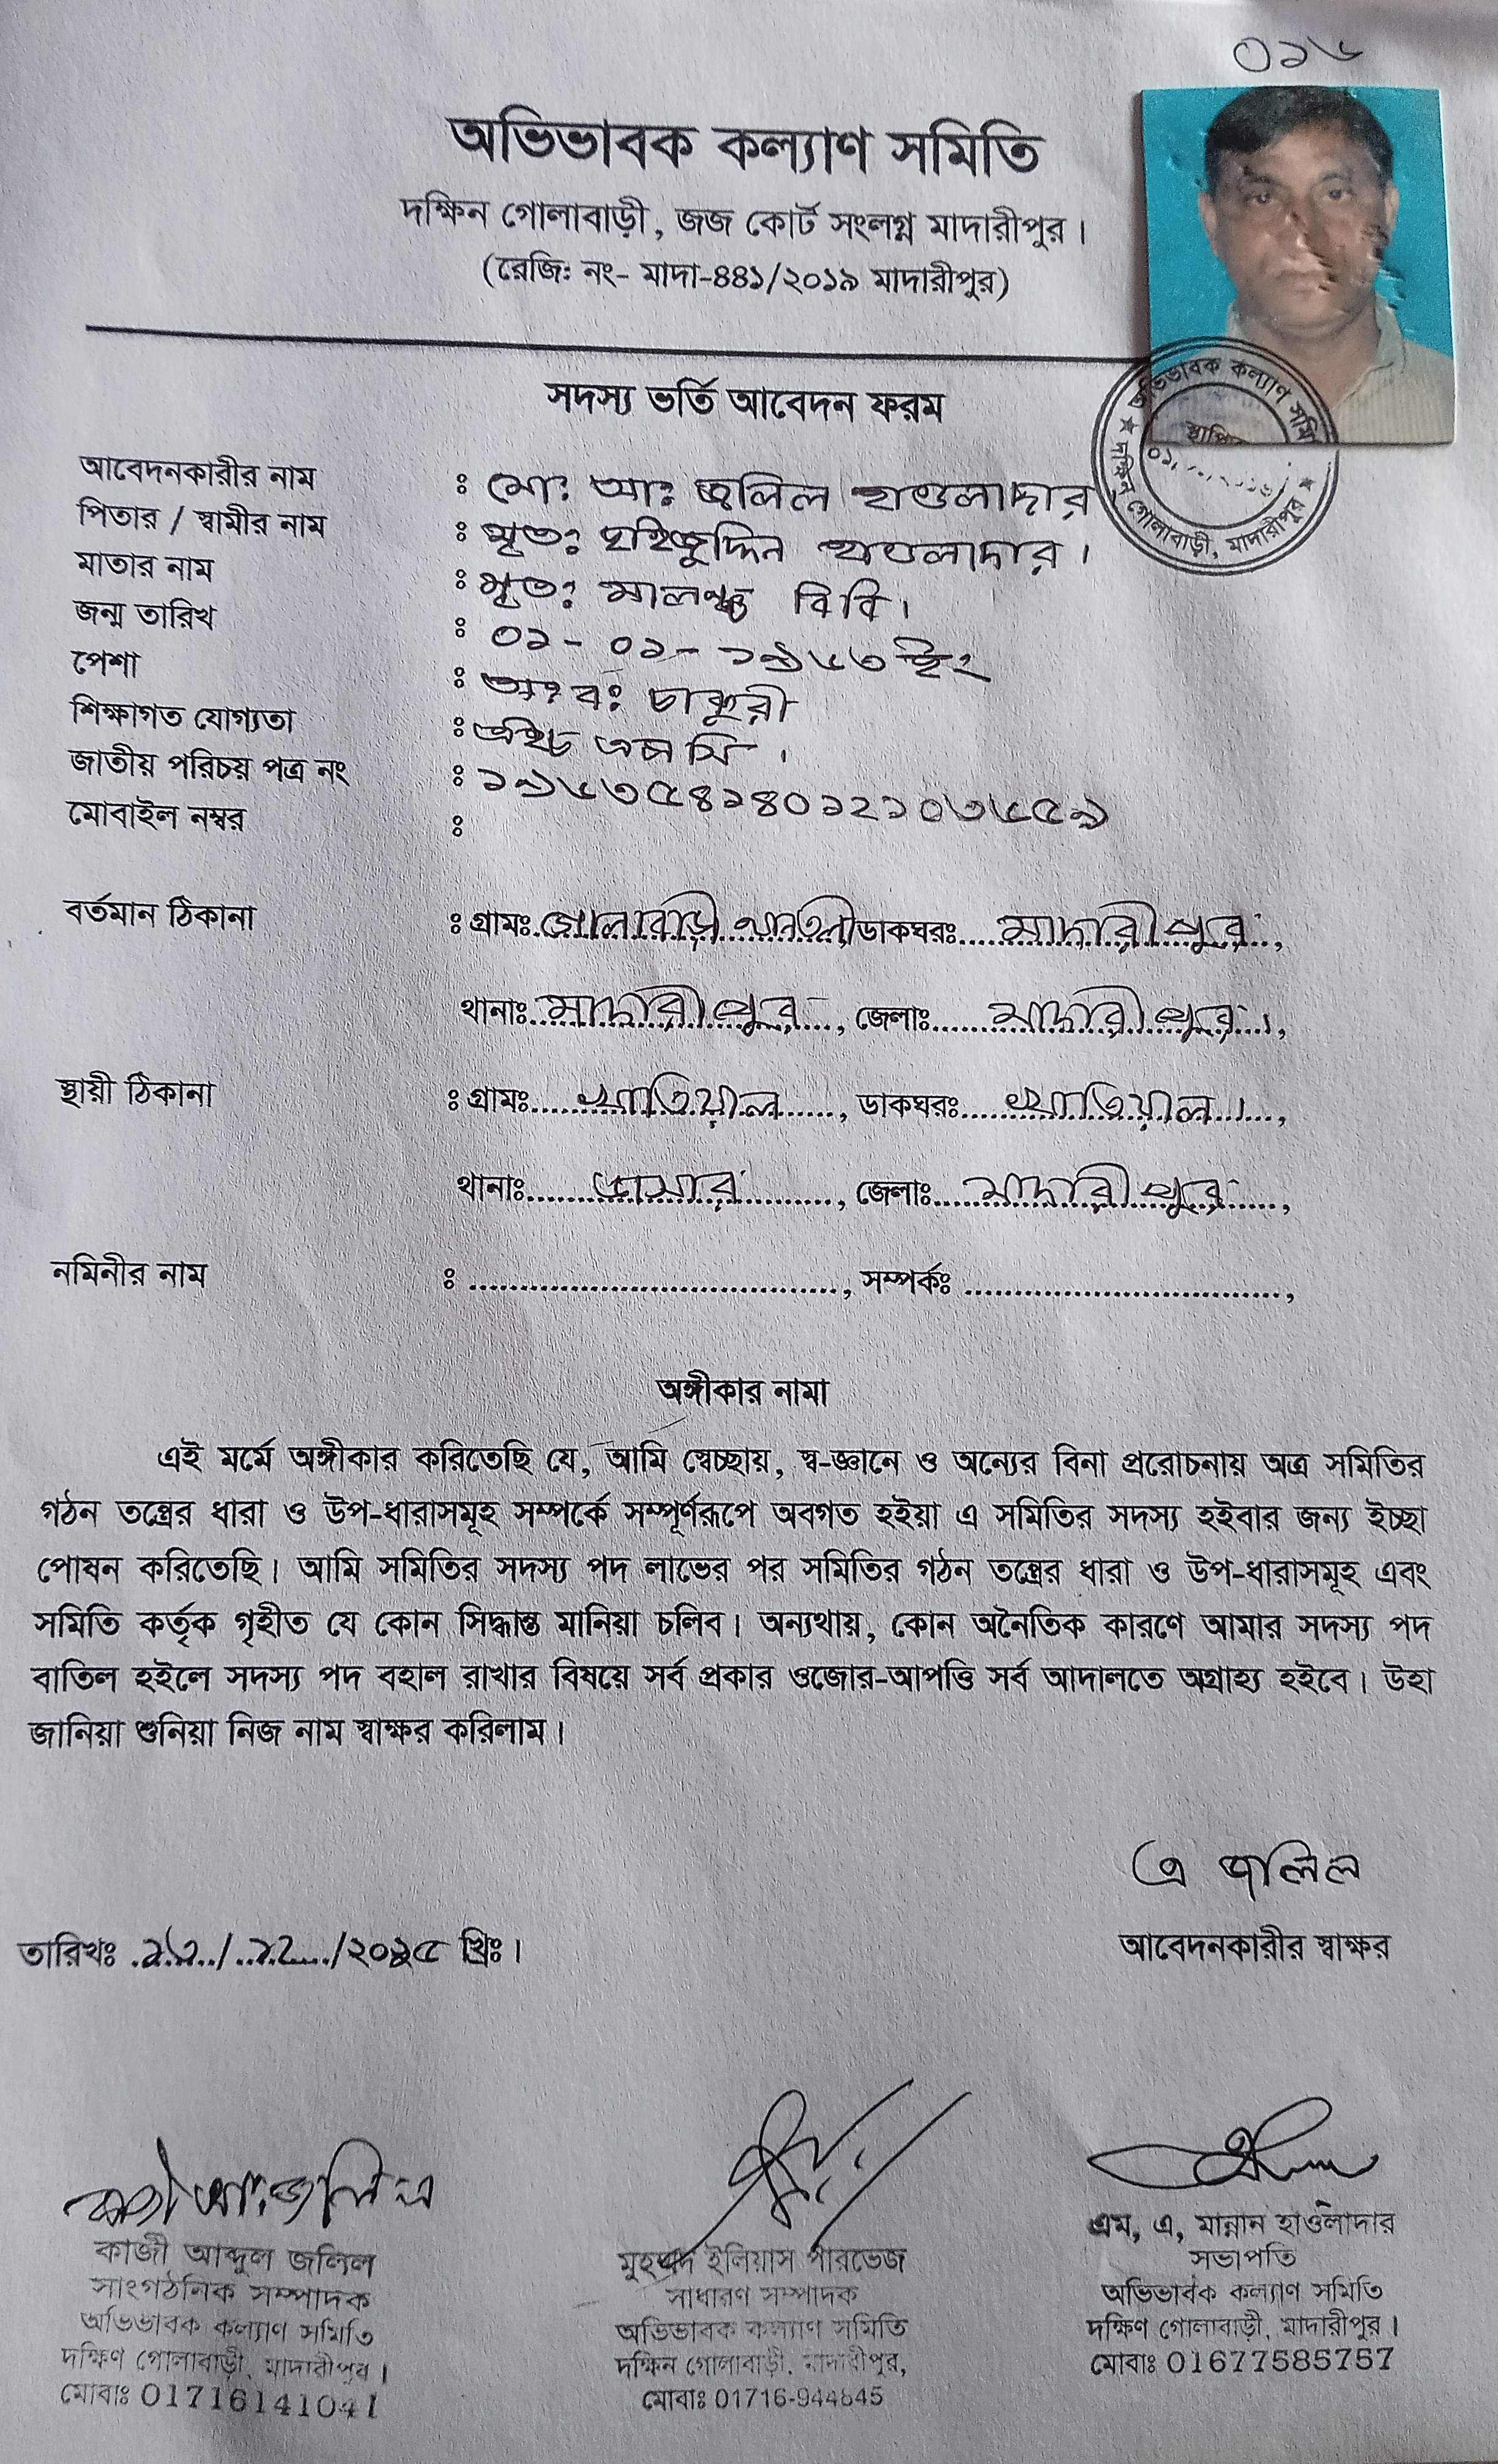 ০১৬
অভিভাবক কল্যাণ সমিতি
দক্ষিন গোলাবাড়ী, জজ কোর্ট সংলগ্ন মাদারীপুর।
(রেজিঃ নং- মাদা-৪৪১/২০১৯ মাদারীপুর)
অভিভাবক কল্যাণ সমি
দক্ষিন গোলাবাড়ী, মাদারীপুর
সদস্য ভর্তি আবেদন ফরম
আবেদনকারীর নাম : মোঃ আঃ জলিল হাওলাদার
পিতার / স্বামীর নাম : মৃতঃ হাওলাদার।
মাতার নাম : মৃতঃ বিবি।
জন্ম তারিখ : ০১-০১-১৯৬৩ ইং
পেশা : অবঃ চাকুরী
শিক্ষাগত যোগ্যতা : এইচ এস সি।
জাতীয় পরিচয় পত্র নং : ১৯৬৩৫৪১৪০১২১০৩৬৫৯
মোবাইল নম্বর :
বর্তমান ঠিকানা : গ্রামঃ গোলাবাড়ী ডাকঘরঃ মাদারীপুর,
থানাঃ মাদারীপুর, জেলাঃ মাদারীপুর।,
স্থায়ী ঠিকানা : গ্রামঃ খাতিয়াল, ডাকঘরঃ খাতিয়াল।,
থানাঃ ডাসার, জেলাঃ মাদারীপুর,
নমিনীর নাম : ...................................., সম্পর্কঃ ................................,
অঙ্গীকার নামা
এই মর্মে অঙ্গীকার করিতেছি যে, আমি স্বেচ্ছায়, স্ব-জ্ঞানে ও অন্যের বিনা প্ররোচনায় অত্র সমিতির
গঠন তন্ত্রের ধারা ও উপ-ধারাসমূহ সম্পর্কে সম্পূর্ণরূপে অবগত হইয়া এ সমিতির সদস্য হইবার জন্য ইচ্ছা
পোষন করিতেছি। আমি সমিতির সদস্য পদ লাভের পর সমিতির গঠন তন্ত্রের ধারা ও উপ-ধারাসমূহ এবং
সমিতি কর্তৃক গৃহীত যে কোন সিদ্ধান্ত মানিয়া চলিব। অন্যথায়, কোন অনৈতিক কারণে আমার সদস্য পদ
বাতিল হইলে সদস্য পদ বহাল রাখার বিষয়ে সর্ব প্রকার ওজোর-আপত্তি সর্ব আদালতে অগ্রাহ্য হইবে। উহা
জানিয়া শুনিয়া নিজ নাম স্বাক্ষর করিলাম।
এ জলিল
তারিখঃ ১৩/১২/২০২৫ খ্রিঃ। আবেদনকারীর স্বাক্ষর
কাজী আঃ জলিল
কাজী আব্দুল জলিল
সাংগঠনিক সম্পাদক
অভিভাবক কল্যাণ সমিতি
দক্ষিণ গোলাবাড়ী, মাদারীপুর।
মোবাঃ 01716141041
মুহম্মদ ইলিয়াস পারভেজ
সাধারণ সম্পাদক
অভিভাবক কল্যাণ সমিতি
দক্ষিন গোলাবাড়ী, মাদারীপুর,
মোবাঃ 01716-944845
এম, এ, মান্নান হাওলাদার
সভাপতি
অভিভাবক কল্যাণ সমিতি
দক্ষিণ গোলাবাড়ী, মাদারীপুর।
মোবাঃ 01677585757